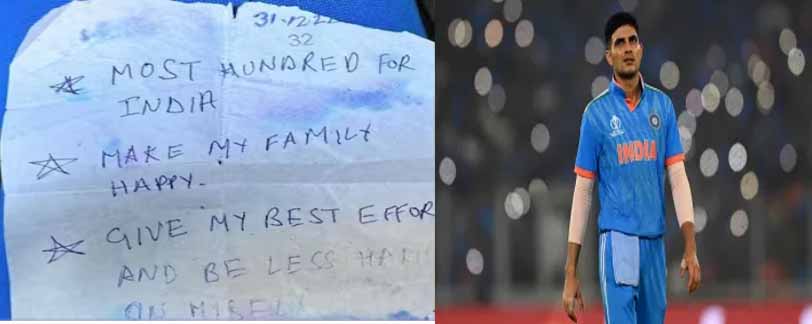 31-12-22
32
MOST HUNDRED FOR
INDIA
MAKE MY FAMILY
HAPPY.
GIVE MY BEST EFFOR
AND BE LESS HAR
ON MYSELF
INDIA